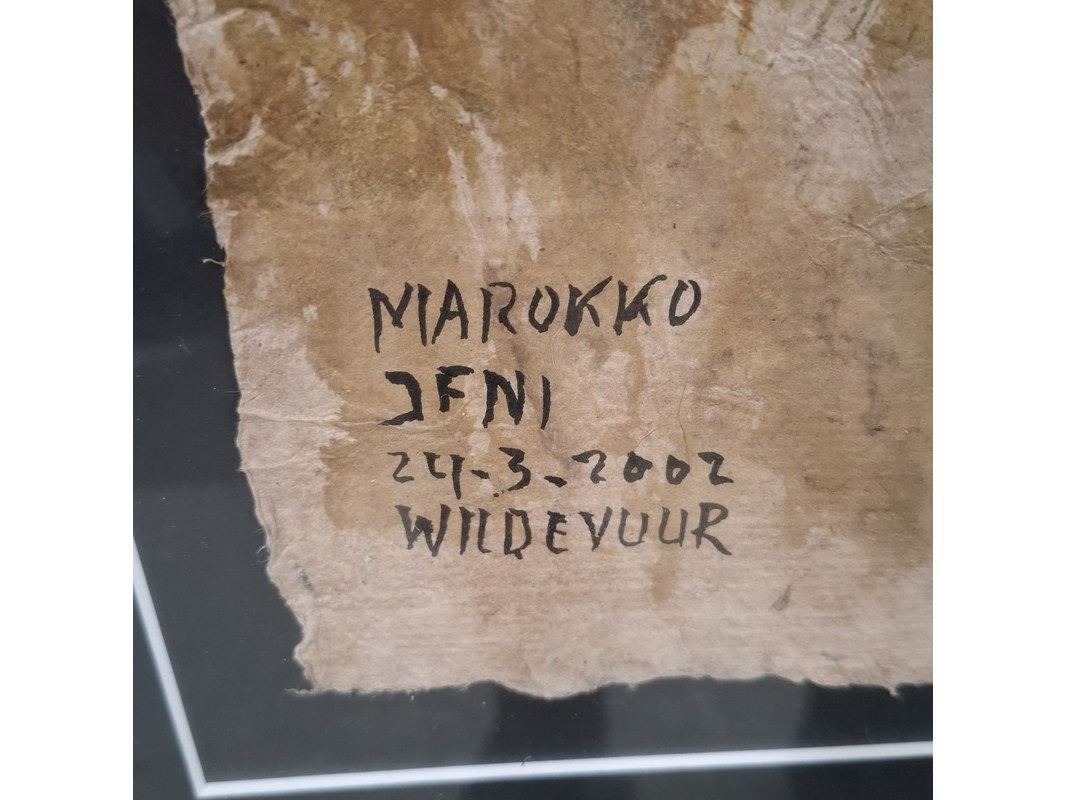 MAROKKO
IFNI
24-3-2002
WILDEVUUR